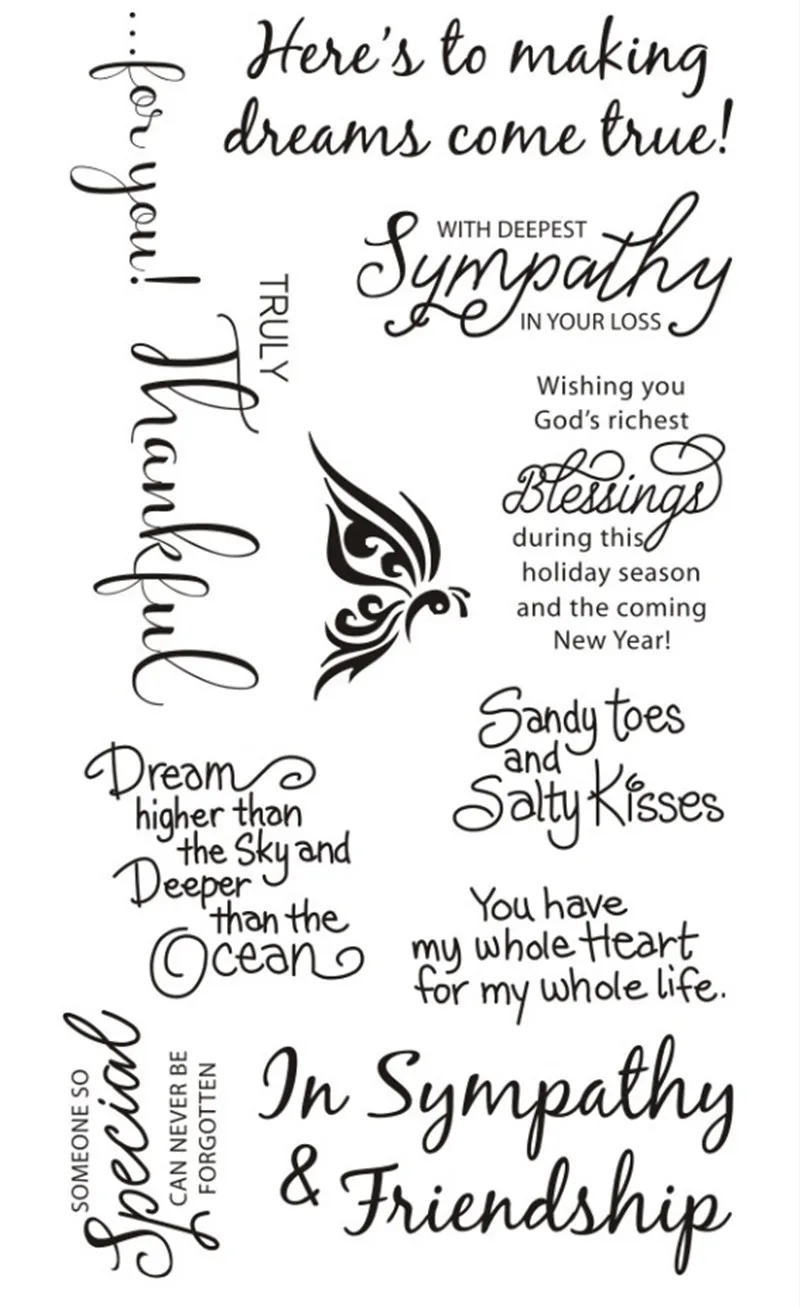 ...for you!
Here's to making
dreams come true!
WITH DEEPEST
Sympathy
IN YOUR LOSS
TRULY
Thankful
Wishing you
God's richest
Blessings
during this
holiday season
and the coming
New Year!
Sandy toes
and
Salty Kisses
Dream
higher than
the Sky and
Deeper
than the
Ocean
You have
my whole Heart
for my whole life.
SOMEONE SO
Special
CAN NEVER BE
FORGOTTEN
In Sympathy
& Friendship